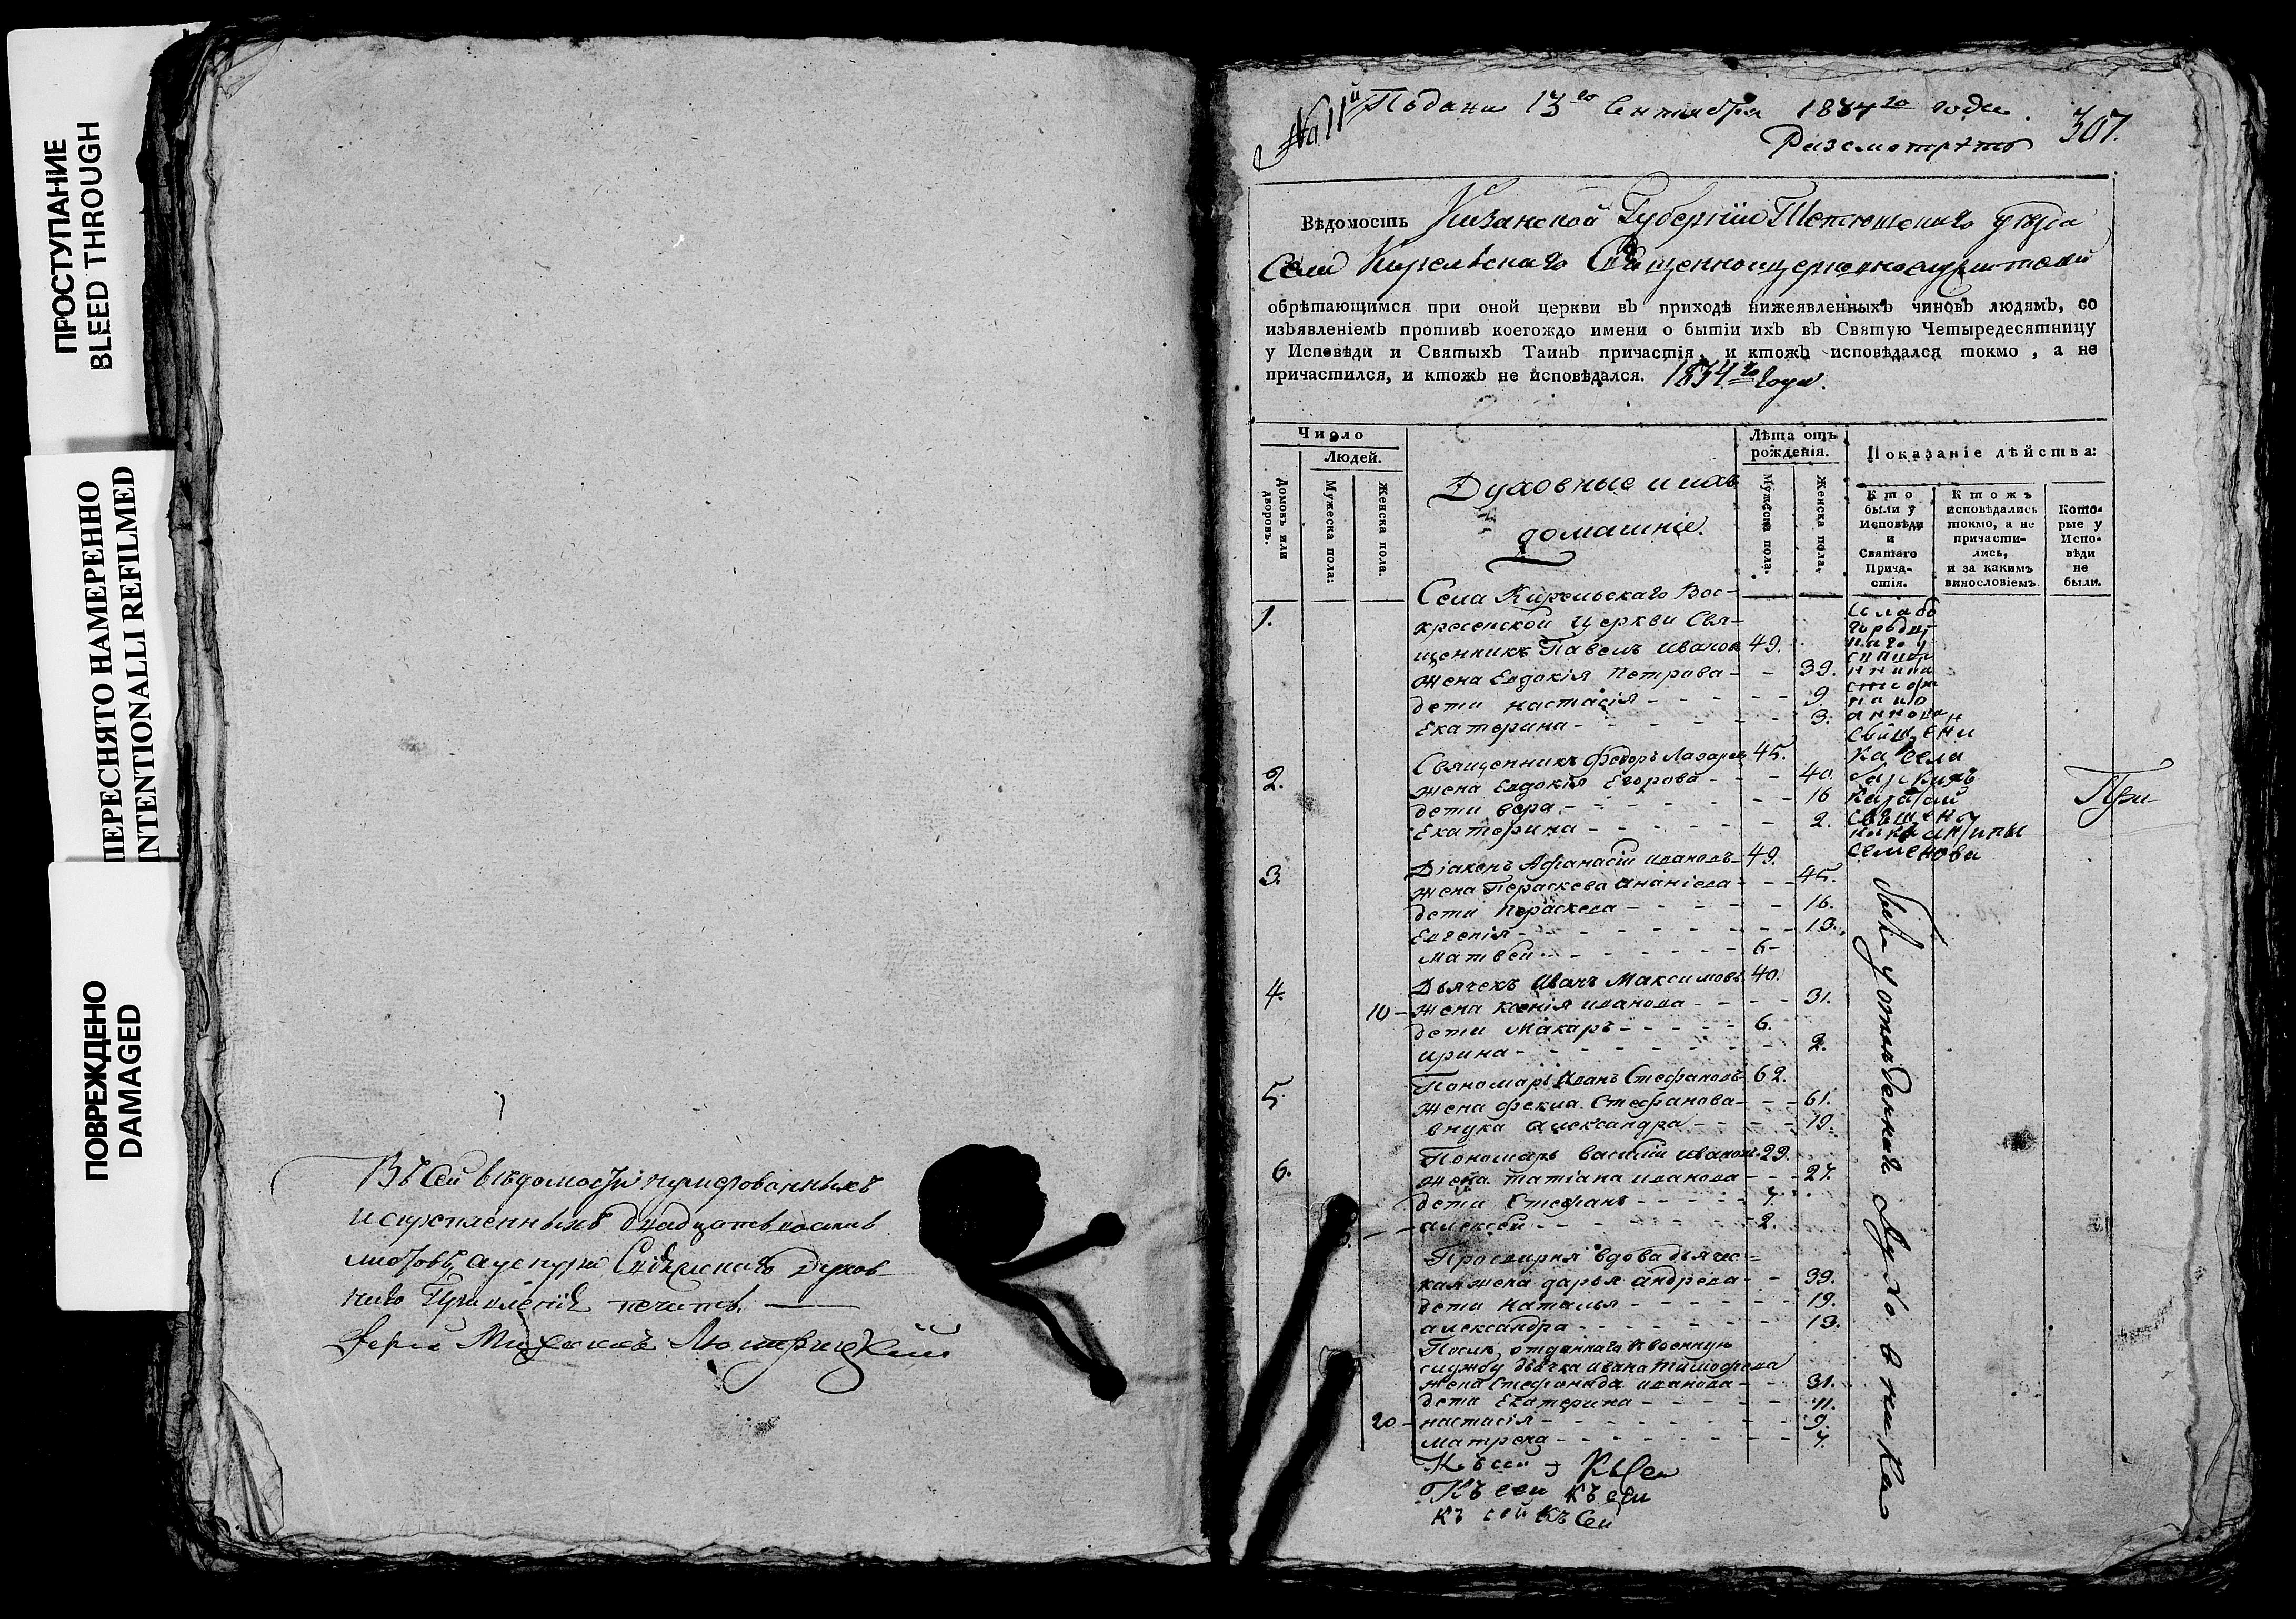 ПРОСТУПАНИЕ
BLEED THROUGH
ПЕРЕСНЯТО НАМЕРЕННО
INTENTIONALLI REFILMED
ПОВРЕЖДЕНО
DAMAGED
Въ сей вѣдомости нумерованныхъ
и скрѣпленныхъ двадцать
листовъ, а у снура Духов-
наго Правленія печать.
Іерей Михаилъ
№ 11й Подана 13го Сентября 1834го года.
Разсмотрѣть 307.
Вѣдомость Казанской Губерніи Тетюшскаго уѣзда
Села Кирельскаго Священноцерковнослужители
обрѣтающимся при оной церкви въ приходѣ нижеявленныхъ чиновъ людямъ, со
изъявленіемъ противъ коегождо имени о бытіи ихъ въ Святую Четыредесятницу
у Исповѣди и Святыхъ Таинъ причастія, и ктожъ исповѣдался токмо, а не
причастился, и ктожъ не исповѣдался. 1834го года.
Число
Людей.
Домовъ или дворовъ.
Мужеска пола.
Женска пола.
Духовные и ихъ
домашніе.
Лѣта отъ рожденія.
Мужеска пола.
Женска пола.
Показаніе дѣйства:
Кто были у Исповѣди и Святаго Прича-стія.
Ктожъ исповѣдались токмо, а не причасти-лись, и за какимъ винословіемъ.
Кото-рые у Испо-вѣди не были.
Села Кирельскаго Вос-
1. кресенской церкви Свя-
щенникъ Павелъ Иванов 49.
жена Евдокія Петрова - - 39.
дети настасія - - - - 9
Екатерина - - - - 3.
Священникъ Федоръ Лазарев 45.
2. жена Евдокія Егорова - - - 40.
дети вера - - - - 16
Екатерина - - - - 2.
Діаконъ Афанасій ивановъ 49.
3. жена Пераскева ананіева - - - 45.
дети Пераскева - - - - 16.
Евгенія - - - - 13.
матвей - - - - 6-
Дьячекъ Иванъ Максимовъ 40.
4. 10 - жена ксенія иванова - - - 31.
дети Макаръ - - - - 6.
ирина - - - - 2.
Пономарь Иванъ Стефановъ 62.
5. жена фекла Стефанова - - - 61.
внука александра - - - - 19.
Пономарь василій иванов. 29.
6. жена татіана иванова - - - 27.
дети Стефанъ - - - - 7.
алексей - - - - 2.
Просвирня вдова дьячес-
кая жена дарья андреева - - 39.
дети наталья - - - - 19.
александра - - - - 13.
После отданнаго в военную
службу дьячка ивана тимофеева
жена Стефанида иванова - - 31.
дети Екатерина - - - - 11.
20 - настасія - - - - 9.
матрена - - - - 7.
Къ сей Къ сей
Къ сей къ сей
къ сей къ Сей
священни
ка села
Священ
семенова
При